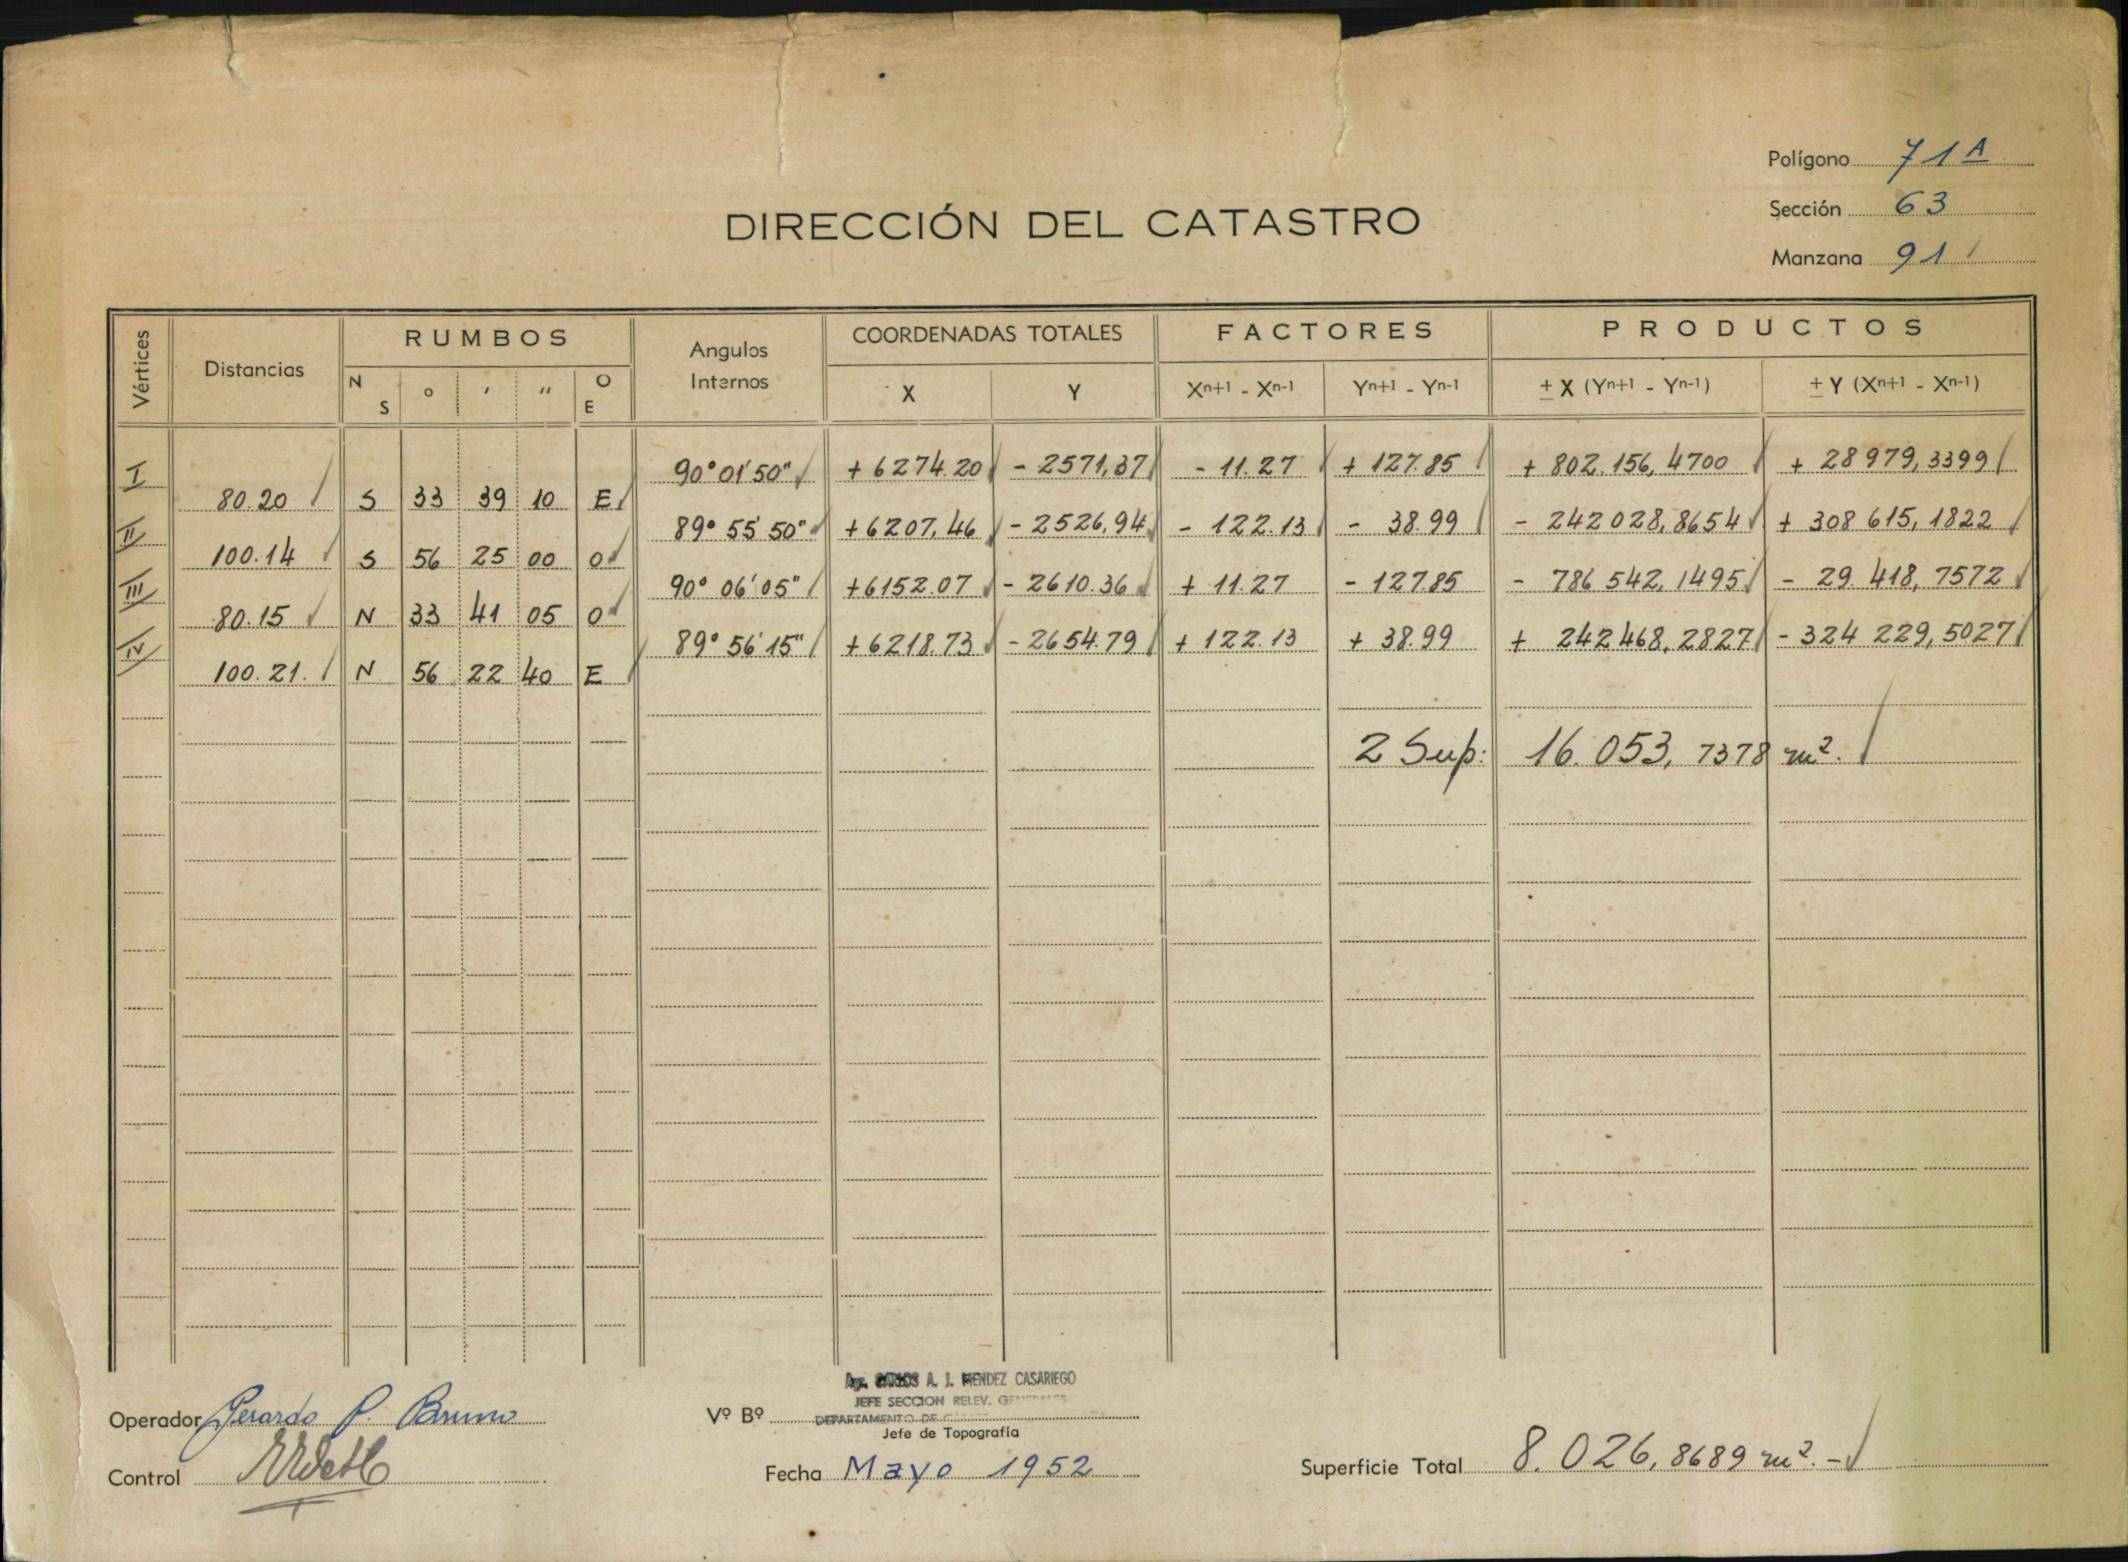 Polígono 71A
Sección 63
Manzana 91
DIRECCIÓN DEL CATASTRO
Vértices Distancias RUMBOS Angulos Internos COORDENADAS TOTALES FACTORES PRODUCTOS
N S ° ' " O E X Y Xn+1 - Xn-1 Yn+1 - Yn-1 ± X (Yn+1 - Yn-1) ± Y (Xn+1 - Xn-1)
I 90° 01' 50" + 6274.20 - 2571,37 - 11.27 + 127.85 + 802.156,4700 + 28 979,3399
80.20 S 33 39 10 E
II 89° 55' 50" + 6207,46 - 2526,94 - 122.13 - 38.99 - 242 028,8654 + 308 615,1822
100.14 S 56 25 00 O
III 90° 06' 05" + 6152.07 - 2610.36 + 11.27 - 127.85 - 786 542,1495 - 29 418,7572
80.15 N 33 41 05 O
IV 89° 56' 15" + 6218.73 - 2654.79 + 122.13 + 38.99 + 242 468,2827 - 324 229,5027
100.21. N 56 22 40 E
2 Sup: 16.053,7378 m².
Operador Gerardo P. Bruno
Control
Vº Bº
A. J. MENDEZ CASARIEGO
JEFE SECCION RELEV. GENERALES
DEPARTAMENTO DE
Jefe de Topografía
Fecha Mayo 1952
Superficie Total 8.026,8689 m².-